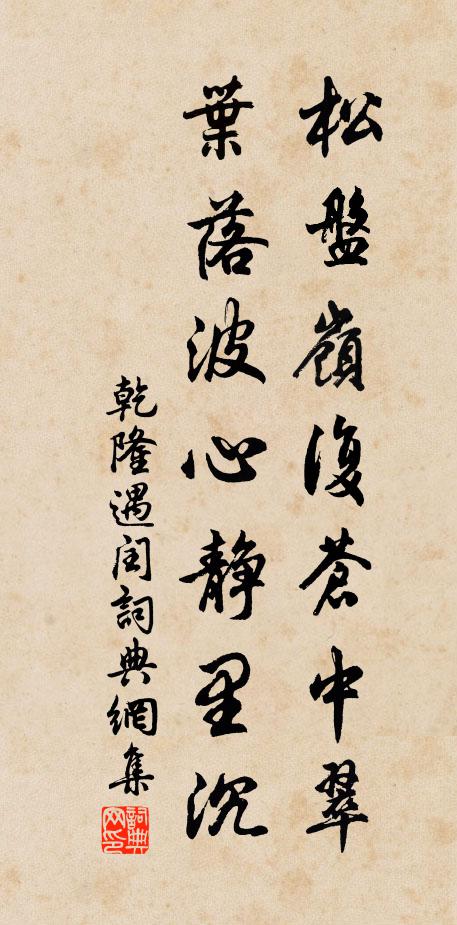 松盤嶺復蒼中翠
葉落波心静里沉
乾隆遇閏詞典網集
詞典
网印